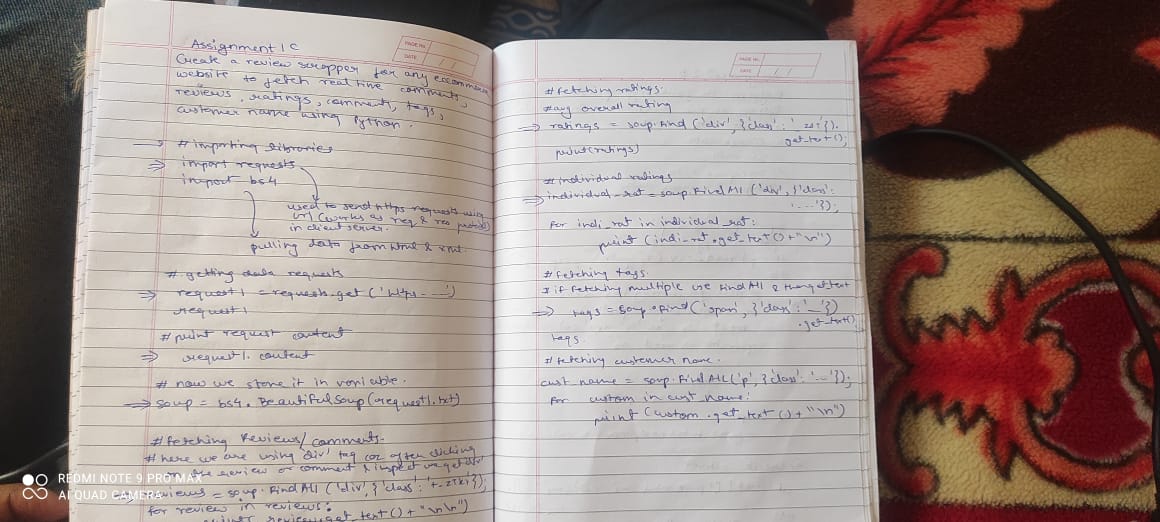 Assignment 1 C
PAGE NO.
DATE
Create a review scrapper for any ecommerce
website to fetch real time comments,
reviews, ratings, comments, tags,
customer name using Python.
# importing libraries
⇒ import requests
import bs4
used to send https requests using
url (works as req & res protocol)
in client server.
pulling data from html & xml.
# getting data requests
⇒ request1 = requests.get ('https - - —')
request1
# print request content
⇒ request1. content
# now we store it in variable.
⇒ soup = bs4. BeautifulSoup(request1.txt)
# fetching Reviews/comments-
# here we are using 'div' tag coz often clicking
on the review or comment & inspect we get
= soup. FindAll ('div', {'class':
for review in reviews:
get_text () + "\n\n")
PAGE NO.
DATE / /
# fetching ratings.
# avg overall rating
⇒ ratings = soup.Find ('div', {'class':
get_text();
print(ratings)
# individual ratings
⇒ individual_rat = soup.FindAll ('div', {'class':
'- - -'});
For indi_rat in individual_rat:
print (indi_rat.get_text () + "\n")
# fetching tags.
# if fetching multiple use FindAll &
⇒ tags = soup.Find ('span', {'class': '—'})
.get_text()
tags
# fetching customer name.
cust_name = soup.FindAll ('p', {'class': '- - -'});
For custom in cust_name:
print (custom.get_text () + "\n")
REDMI NOTE 9 PRO MAX
AI QUAD CAMERA